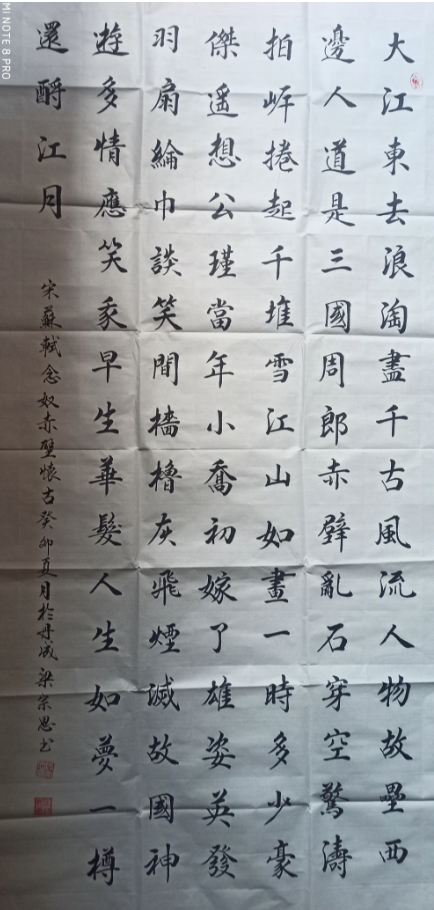 大江東去浪淘盡千古風流人物故壘西
邊人道是三國周郎赤壁亂石穿空驚濤
拍岸捲起千堆雪江山如畫一時多少豪
傑遙想公瑾當年小喬初嫁了雄姿英發
羽扇綸巾談笑間檣櫓灰飛煙滅故國神
遊多情應笑我早生華髮人生如夢一樽
還酹江月
宋蘇軾念奴赤壁懷古癸卯夏月於丹成梁宗恩书
MI NOTE 8 PRO